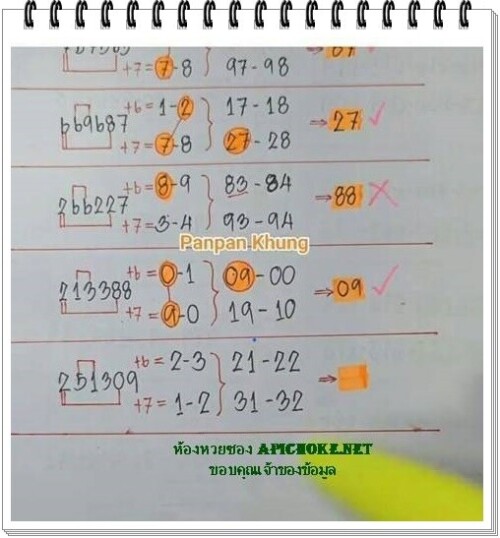 +7 = 7-8 } 97-98
669687 +6 = 1-2 } 17-18 ⇒ 27 ✓
+7 = 7-8 27-28
266227 +6 = 8-9 } 83-84 ⇒ 88 ✗
+7 = 3-4 93-94
Panpan Khung
213388 +6 = 0-1 } 09-00 ⇒ 09 ✓
+7 = 9-0 19-10
251309 +6 = 2-3 } 21-22 ⇒
+7 = 1-2 31-32
ห้องหวยซอง APICHOKE.NET
ขอบคุณเจ้าของข้อมูล